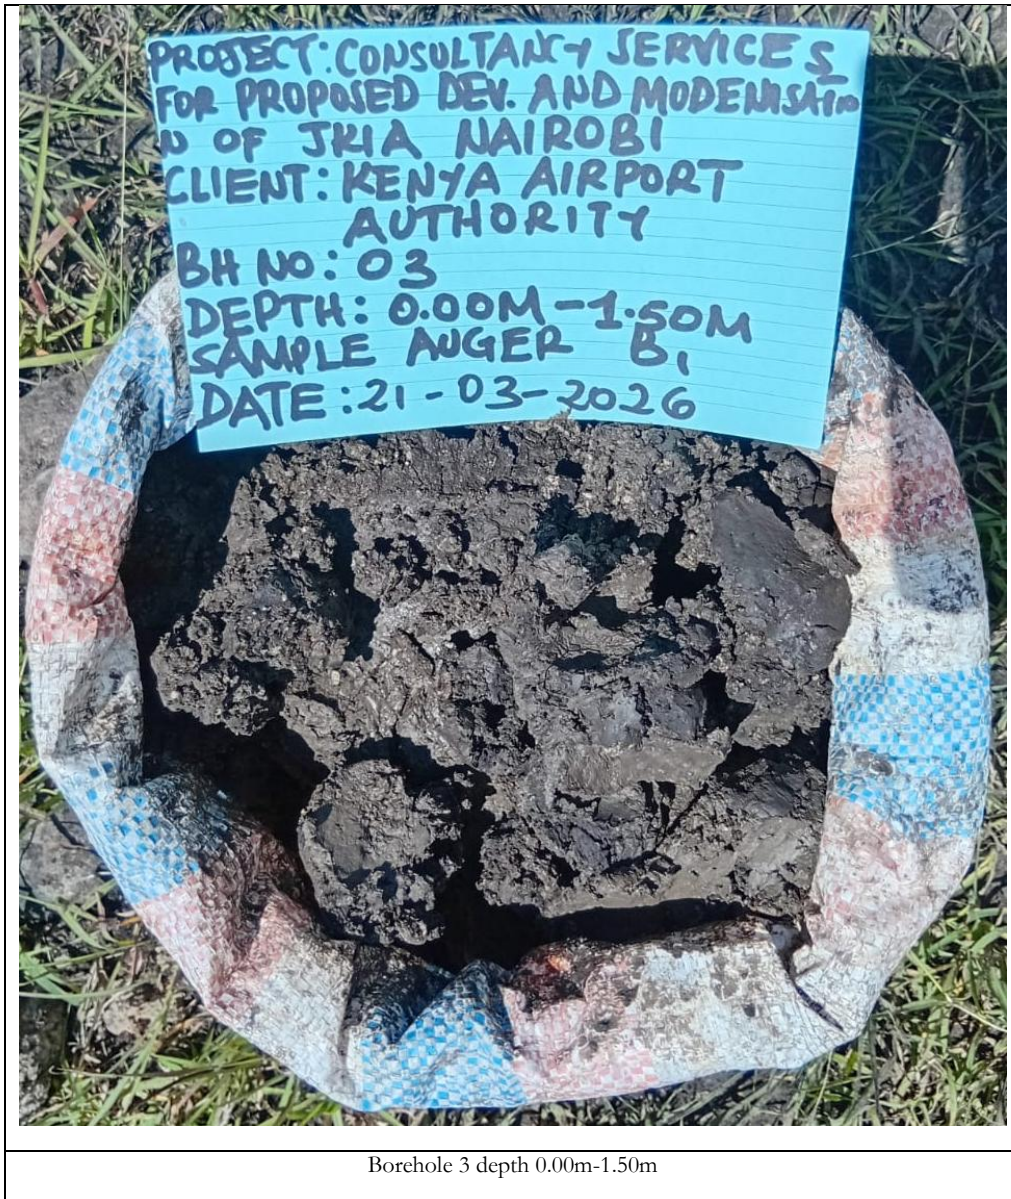 PROJECT: CONSULTANCY SERVICES
FOR PROPOSED DEV. AND MODENISATIO
N OF JKIA NAIROBI
CLIENT: KENYA AIRPORT
AUTHORITY
BH NO: 03
DEPTH: 0.00M-1.50M
SAMPLE AUGER B1
DATE: 21-03-2026
Borehole 3 depth 0.00m-1.50m